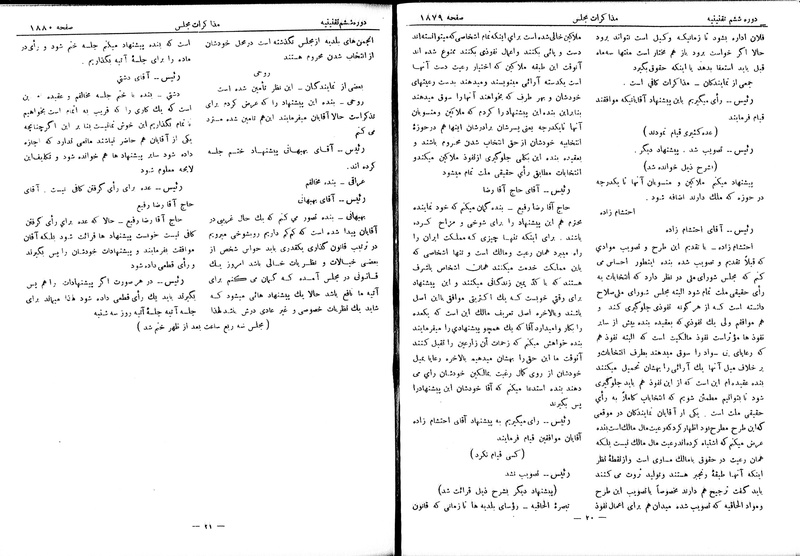 دوره ششم تقنینیه
مذاکرات مجلس
صفحه ۱۸۷۹
فلان اداره بشود تا زمانیکه وکیل است نتواند برود
حالا اگر خواست برود باز هم مختار است منتها سه‌ماه
قبل باید استعفا بدهد یا اینکه حقوق بگیرد
جمعی از نمایندگان ـ مذاکرات کافی است .
رئیس ـ رأی میگیریم باین پیشنهاد آقایانیکه موافقند
قیام فرمایند
(عده کثیری قیام نمودند)
رئیس ـ تصویب شد . پیشنهاد دیگر .
(شرح ذیل خوانده شد)
پیشنهاد میکنم ملاکین و منسوبان آنها تا یکدرجه
در حوزه که ملک دارند اضافه شود .
احتشام زاده
رئیس ـ آقای احتشام زاده
احتشام زاده ـ با تقدیم این طرح و تصویب موادی
که قبلا تقدیم و تصویب شده بنده اینطور احساس می
کنم که مجلس شورای ملی در نظر دارد که انتخابات به
رأی حقیقی ملت تمام شود البته مجلس شورای ملی صلاح
دانسته است که از هر گونه نفوذی جلوگیری کند و
هم موافقم ولی یك نفوذی که بعقیده بنده بیش از سایر
نفوذ ها مؤثر است نفوذ مالکیت است که البته نفوذ هم
که رعایای بی سواد را سوق میدهند بطرف انتخابات و
بر خلاف میل آنها یك آرائی را بهشان تحمیل میکنند
بنده عقیده ام این است که از این نفوذ هم باید جلوگیری
شود تا بتوانیم مطمئن شویم که انتخابات کاملا به رأی
حقیقی ملت است . یکی از آقایان نمایندگان در موقعی
که این طرح مطرح بود اظهار کرد که رعیت مال مالك است بنده
عرض میکنم که اشتباه کرده‌اند رعیت مال مالك نیست بلکه
همان رعیت در حقوق با مالك مساوی است و از نقطه نظر
اینکه آنها طبقه رنجبر هستند و تولید ثروت می کنند
باید گفت ترجیح هم دارند مخصوصاً با تصویب این طرح
و مواد الحاقیه که تصویب شده میدان هم برای اعمال نفوذ
ملاکین خالی شده است برای اینکه تمام اشخاصی که میتوانسته‌اند
دست و پائی بکنند و اعمال نفوذی بکنند ممنوع شده اند
آنوقت این طبقه ملاکین که اختیار رعیت دست آنها
است یکدسته آرائی مینویسند و میدهند بدست رعیتهای
خودشان و بهر طرف که بخواهند آنها را سوق میدهند
بنابر این بنده این پیشنهاد را کردم که ملاکین و منسوبان
آنها تا یکدرجه یعنی پسرشان برادرشان اینها هم در حوزهٔ
انتخابیه خودشان از حق انتخاب شدن محروم باشند و
بعقیده بنده این بکلی جلوگیری از نفوذ ملاکین میکند و
انتخابات مطابق رأی حقیقی ملت تمام میشود
رئیس ـ آقای حاج آقا رضا
حاج آقا رضا رفیع ـ بنده گمان میکنم که خود نماینده
محترم هم این پیشنهاد را برای شوخی و مزاح کرده
باشند . برای اینکه تنها چیزی که مملکت ایران را
راه میبرد همان رعیت و مالك است و تنها اشخاصی که
باین مملکت خدمت میکنند همان اشخاص باشرف
هستند که با کد یمین زندگانی میکنند و این پیشنهاد
برای رفتن خوب است که یك اکثریتی موافق با این اصل
باشند و بالاخره اصل تعریف مالك این است که بکنده
را بکار وامیدارد آقا که یك همچو پیشنهادی را میفرمایند
بنده خواهش میکنم که زحمات آن زارعین را تقبل کنند
آنوقت ما این حق را بهشان میدهیم بالاخره رعایا بمیل
خودشان از روی کمال رغبت بمالکین خودشان رای می
دهند بنده استدعا میکنم که آقا خودشان این پیشنهاد را
پس بگیرند
رئیس ـ رای میگیریم به پیشنهاد آقای احتشام زاده
آقایان موافقین قیام فرمایند
(کسی قیام نکرد)
رئیس ـ تصویب نشد
(پیشنهاد دیگر بشرح ذیل قرائت شد)
تبصرهٔ الحاقیه ـ رؤسای بلدیه ها تا زمانی که قانون
ـ ۲۰ ـ
دوره ششم تقنینیه
مذاکرات مجلس
صفحه ۱۸۸۰
انجمن‌های بلدیه از مجلس نگذشته است در محل خودشان
از انتخاب شدن محروم هستند
روحی
بعضی از نمایندگان ـ این نظر تأمین شده است
روحی ـ بنده این پیشنهاد را که عرض کردم برای
تذکر است حالا آقایان میفرمایند این هم تامین شده مسترد
می کنم
رئیس ـ آقای بهبهانی پیشنهاد ختم جلسه
کرده اند .
عراقی ـ بنده مخالفم
رئیس ـ آقای بهبهانی
بهبهانی ـ بنده تصور می کنم که یك حال غریبی در
آقایان پیدا شده است که کم کم داریم روبشوخی میرویم
در ترتیب قانون گذاری یکقدری باید حواس شخص از
بعضی خیالات و نظریات خالی باشد امروز یك
قانونی در مجلس آمده که گمان می کنم برای
آتیه ما نافع باشد حالا یك پیشنهاد هائی میشود که
شاید یك نظریات خصوصی و غیر عادی درش باشد لهذا
است که بنده پیشنهاد میکنم جلسه ختم شود و رأی در
ماده را برای جلسه آتیه بگذاریم .
رئیس ـ آقای دشتی
دشتی ـ بنده با ختم جلسه مخالفم و عقیده ام این
است که یك کاری را که قریب به اتمام است بخواهیم
نا تمام بگذاریم این خوش نمائیست بنا بر این اگر چنانچه
یکی از آقایان هم حاضر نباشند مانعی ندارد که اجازه
داده شود سایر پیشنهاد ها هم خوانده شود و تکلیف این
لایحه معلوم شود
رئیس ـ عده برای رأی گرفتن کافی نیست . آقای
حاج آقا رضا رفیع
حاج آقا رضا رفیع ـ حالا که عده برای رأی گرفتن
کافی نیست خوبست پیشنهاد ها قرائت شود بلکه آقایان
موافقت بفرمایند و پیشنهادات خودشان را پس بگیرند
و رأی قطعی داده شود
رئیس ـ در هر صورت اگر پیشنهادات را هم پس
بگیرند باید یك رأی قطعی داده شود لهذا میماند برای
جلسه آتیه جلسهٔ آتیه روز سه شنبه
( مجلس سه ربع ساعت بعد از ظهر ختم شد )
ـ ۲۱ ـ